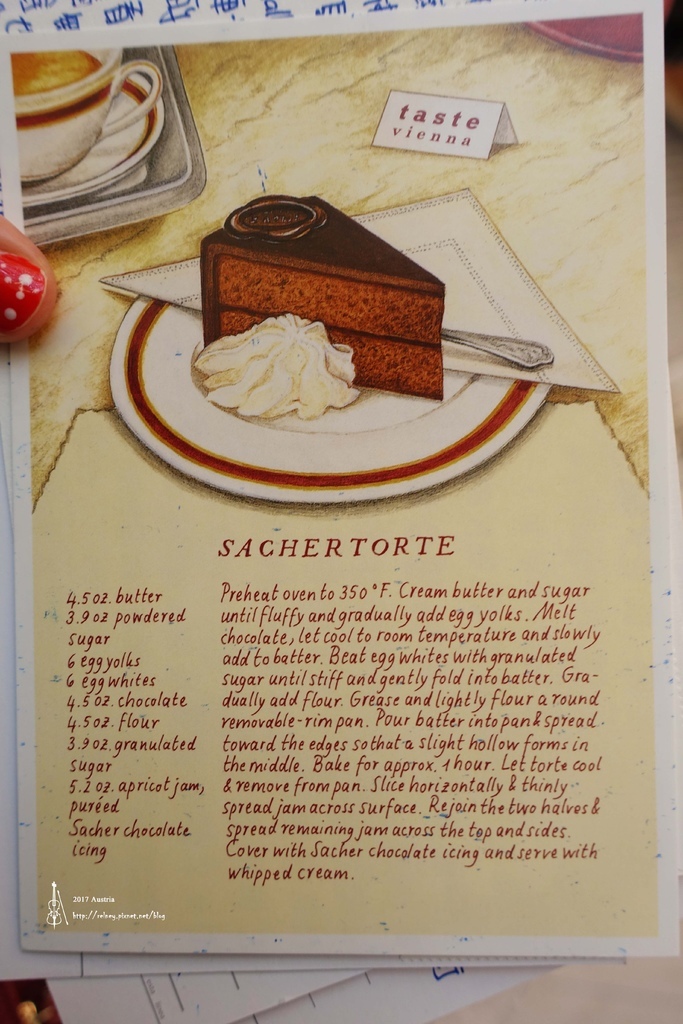 taste
vienna
SACHERTORTE
4.5 oz. butter
3.9 oz powdered
sugar
6 egg yolks
6 egg whites
4.5 oz. chocolate
4.5 oz. flour
3.9 oz. granulated
sugar
5.2 oz. apricot jam,
puréed
Sacher chocolate
icing
Preheat oven to 350 °F. Cream butter and sugar
until fluffy and gradually add egg yolks. Melt
chocolate, let cool to room temperature and slowly
add to batter. Beat egg whites with granulated
sugar until stiff and gently fold into batter. Gra-
dually add flour. Grease and lightly flour a round
removable-rim pan. Pour batter into pan & spread
toward the edges so that a slight hollow forms in
the middle. Bake for approx. 1 hour. Let torte cool
& remove from pan. Slice horizontally & thinly
spread jam across surface. Rejoin the two halves &
spread remaining jam across the top and sides.
Cover with Sacher chocolate icing and serve with
whipped cream.
2017 Austria
http://relney.pixnet.net/blog